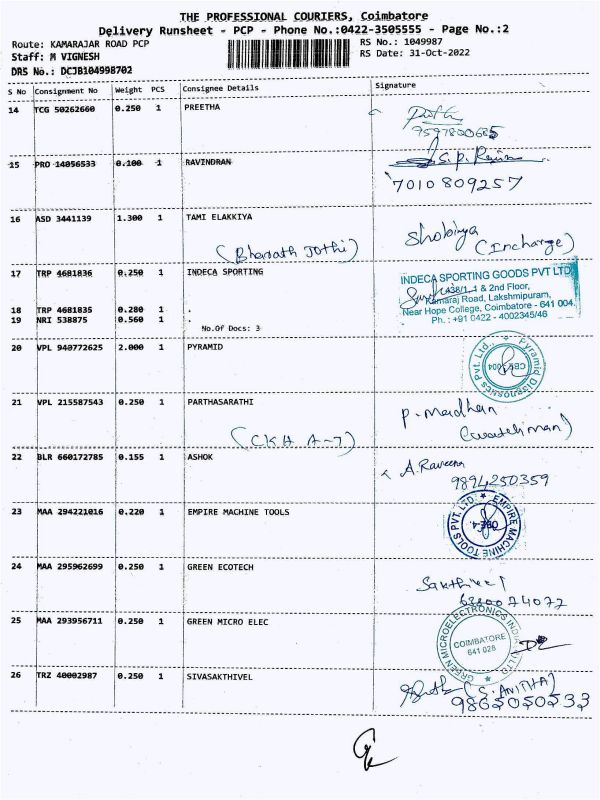 THE PROFESSIONAL COURIERS, Coimbatore
Delivery Runsheet - PCP - Phone No.:0422-3505555 - Page No.:2
Route: KAMARAJAR ROAD PCP
RS No.: 1049987
Staff: M VIGNESH
RS Date: 31-Oct-2022
DRS No.: DCJB104998702
S No Consignment No Weight PCS Consignee Details Signature
14 TCG 50262660 0.250 1 PREETHA
9597800685
15 PRO 14056533 0.100 1 RAVINDRAN
7010809257
16 ASD 3441139 1.300 1 TAMI ELAKKIYA
(Bharath Jothi)
Shobiya
(Incharge)
17 TRP 4681836 0.250 1 INDECA SPORTING
INDECA SPORTING GOODS PVT LTD
& 2nd Floor,
Kamaraj Road, Lakshmipuram,
Near Hope College, Coimbatore - 641 004
Ph. : +91 0422 - 4002345/46
18 TRP 4681835 0.280 1 .
19 NRI 538875 0.560 1 .
No.Of Docs: 3
20 VPL 940772625 2.000 1 PYRAMID
Pyramid Diagnostics Pvt. Ltd.,
21 VPL 215587543 0.250 1 PARTHASARATHI
(CKH A-7)
P. Madhan
(watchman)
22 BLR 660172785 0.155 1 ASHOK
A. Raveena
9894250359
23 MAA 294221016 0.220 1 EMPIRE MACHINE TOOLS
EMPIRE MACHINE TOOLS PVT. LTD.
24 MAA 295962699 0.250 1 GREEN ECOTECH
Sakthivel
25 MAA 293956711 0.250 1 GREEN MICRO ELEC
GREEN MICROELECTRONICS
COIMBATORE
641 028
26 TRZ 40002987 0.250 1 SIVASAKTHIVEL
(S. ANITHA)
9865050533